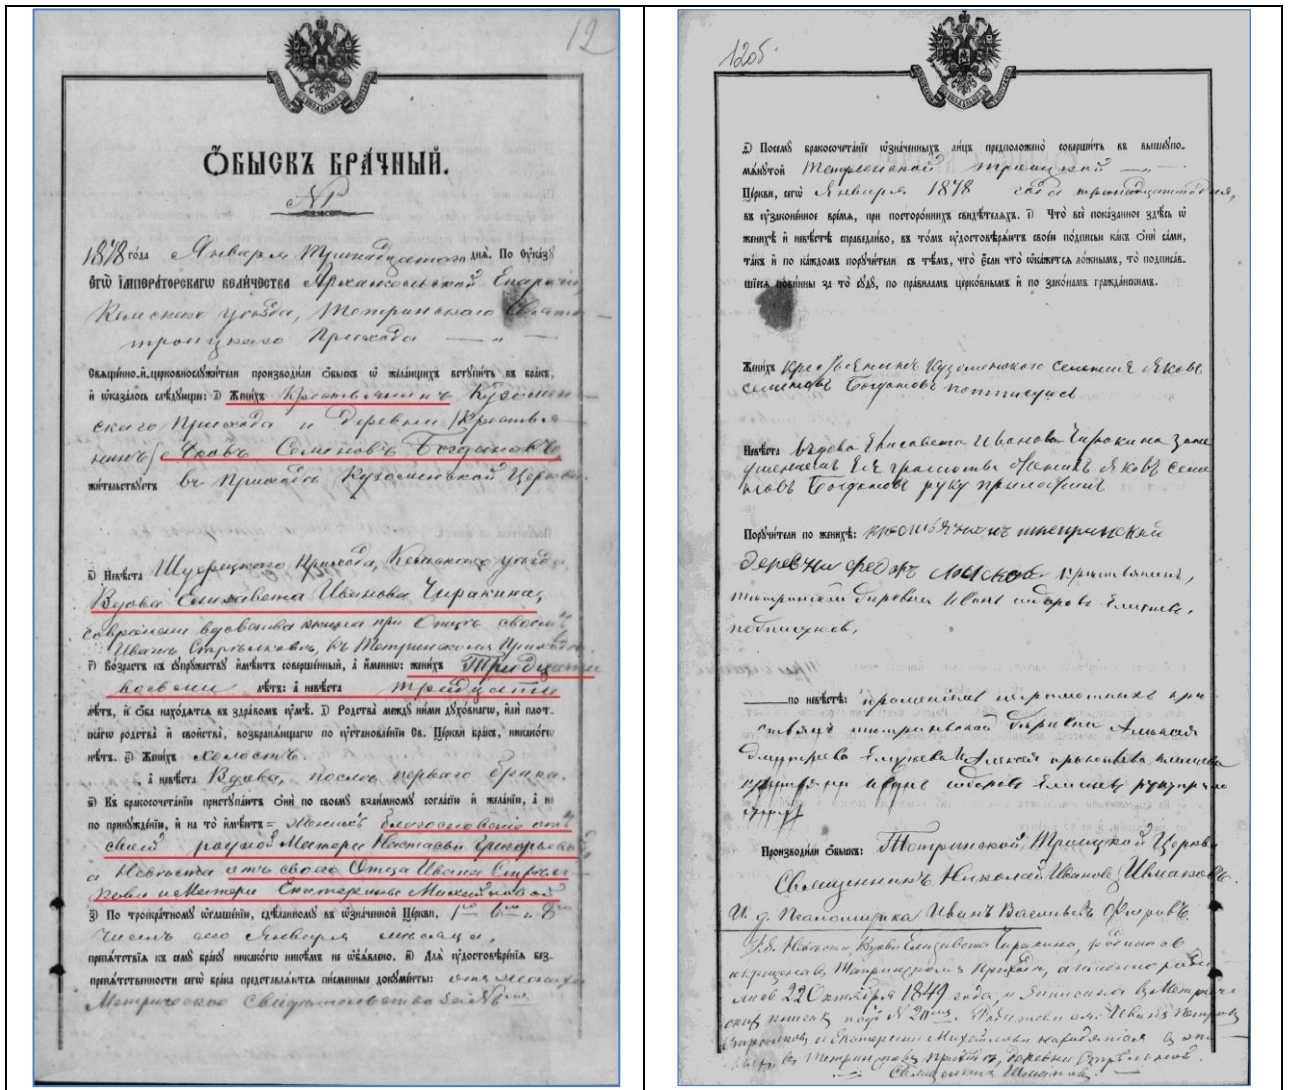 12
ОБЫСКЪ БРАЧНЫЙ.
№
1878 года Января Тринадцатого дня. По Указу
ЕГѠ ІМПЕРАТОРСКАГѠ ВЕЛИЧЕСТВА Архангельской Епархіи,
Кемскаго уѣзда, Тетринскаго Свято
троицкаго Прихода
Священно-и-церковнослужители производили обыскъ ѡ желающихъ вступить въ бракъ,
и ѡказалось слѣдующее: а) Женихъ Крестьянинъ Кузомен-
скаго Прихода и деревни /Крестья-
нинъ/ Яковъ Семеновъ Богдановъ
жительствуетъ въ Приходѣ Кузоменской Церкви.
б) Невѣста Шуерецкаго Прихода, Кемскаго уѣзда
Вдова Елизавета Иванова Чиракина,
вдовства при Отцѣ своемъ
Иванѣ Стрѣлковѣ, въ Тетринскомъ Приходѣ.
г) Возрастъ къ супружеству имѣютъ совершенный, а именно: женихъ Тридцати
восьми лѣтъ: а невѣста тридцати
лѣтъ, и оба находятся въ здравомъ умѣ. д) Родства между ними духовнаго, или плот-
скагѡ родства и свойства, возбраняющаго по установленію Св. Церкви бракъ, никакогѡ
нѣтъ. е) Женихъ холостъ.
а невѣста Вдова, послѣ перваго брака.
ѕ) Къ бракосочетанію приступаютъ они по своему взаимному согласію и желанію, а не
по принужденію, и на то имѣютъ = женихъ благословеніе отъ
своей родной Матери Настасьи Григорьевой,
а Невѣста отъ своего Отца Ивана Стрѣл-
кова и Матери Екатерины Михайловой
з) По троекратному ѡглашенію, сдѣланному въ ѡзначенной Церкви, 1го 6го
числъ сего Января мѣсяца,
препятствія къ сему браку никакогѡ никѣмъ не объявлено. и) Для удостовѣренія без-
препятственности сегѡ брака представляются письменные документы: отъ жениха
Метрическое Свидѣтельство за №
12об
ѳ) Посему бракосочетаніе ѡзначенныхъ лицъ предположено совершить въ вышеупо-
мянутой Тетринской Троицкой
Церкви, сегѡ Января 1878 года тринадцатого дня,
въ узаконенное время, при постороннихъ свидѣтеляхъ. і) Что все показанное здѣсь ѡ
женихѣ и невѣстѣ справедливо, въ томъ удостовѣряютъ своею подписью какъ они сами,
такъ и по каждомъ поручители съ тѣмъ, что если что ѡкажется ложнымъ, то подписав-
шіеся повинны за то суду, по правиламъ церковнымъ и по законамъ гражданскимъ.
Женихъ крестьянинъ Кузоменскаго селенія Яковъ
семеновъ Богдановъ потписуюсь
Невѣста вдова Елисавета Иванова Чиракина за не
умениемъ Ея грамоты Женихъ Яковъ семе
новъ Богдановъ руку приложилъ
Поручители по женихѣ: крестьянинъ тетринской
деревни федоръ крестьянинъ,
тетринской деревни Иванъ
подписуюсь,
по невѣстѣ: кре
стьянъ тетринской деревни Алексей
Алексей
Иванъ
Производили обыскъ: Тетринской, Троицкой Церкви
Священникъ Николай Ивановъ
И. д. Псаломщика Иванъ Васильевъ
Невѣста, Вдова Елизавета Чиракина, родилась
и крещена въ Тетринскомъ Приходѣ, а именно роди
лась 22 Октября 1849 года, и записана въ Метриче
ской книгѣ подъ № 20 Родители ея: Иванъ Петровъ
Стрѣлковъ и Екатерина Михайлова находятся въ
въ Тетринскомъ Приходѣ, деревни
Священникъ